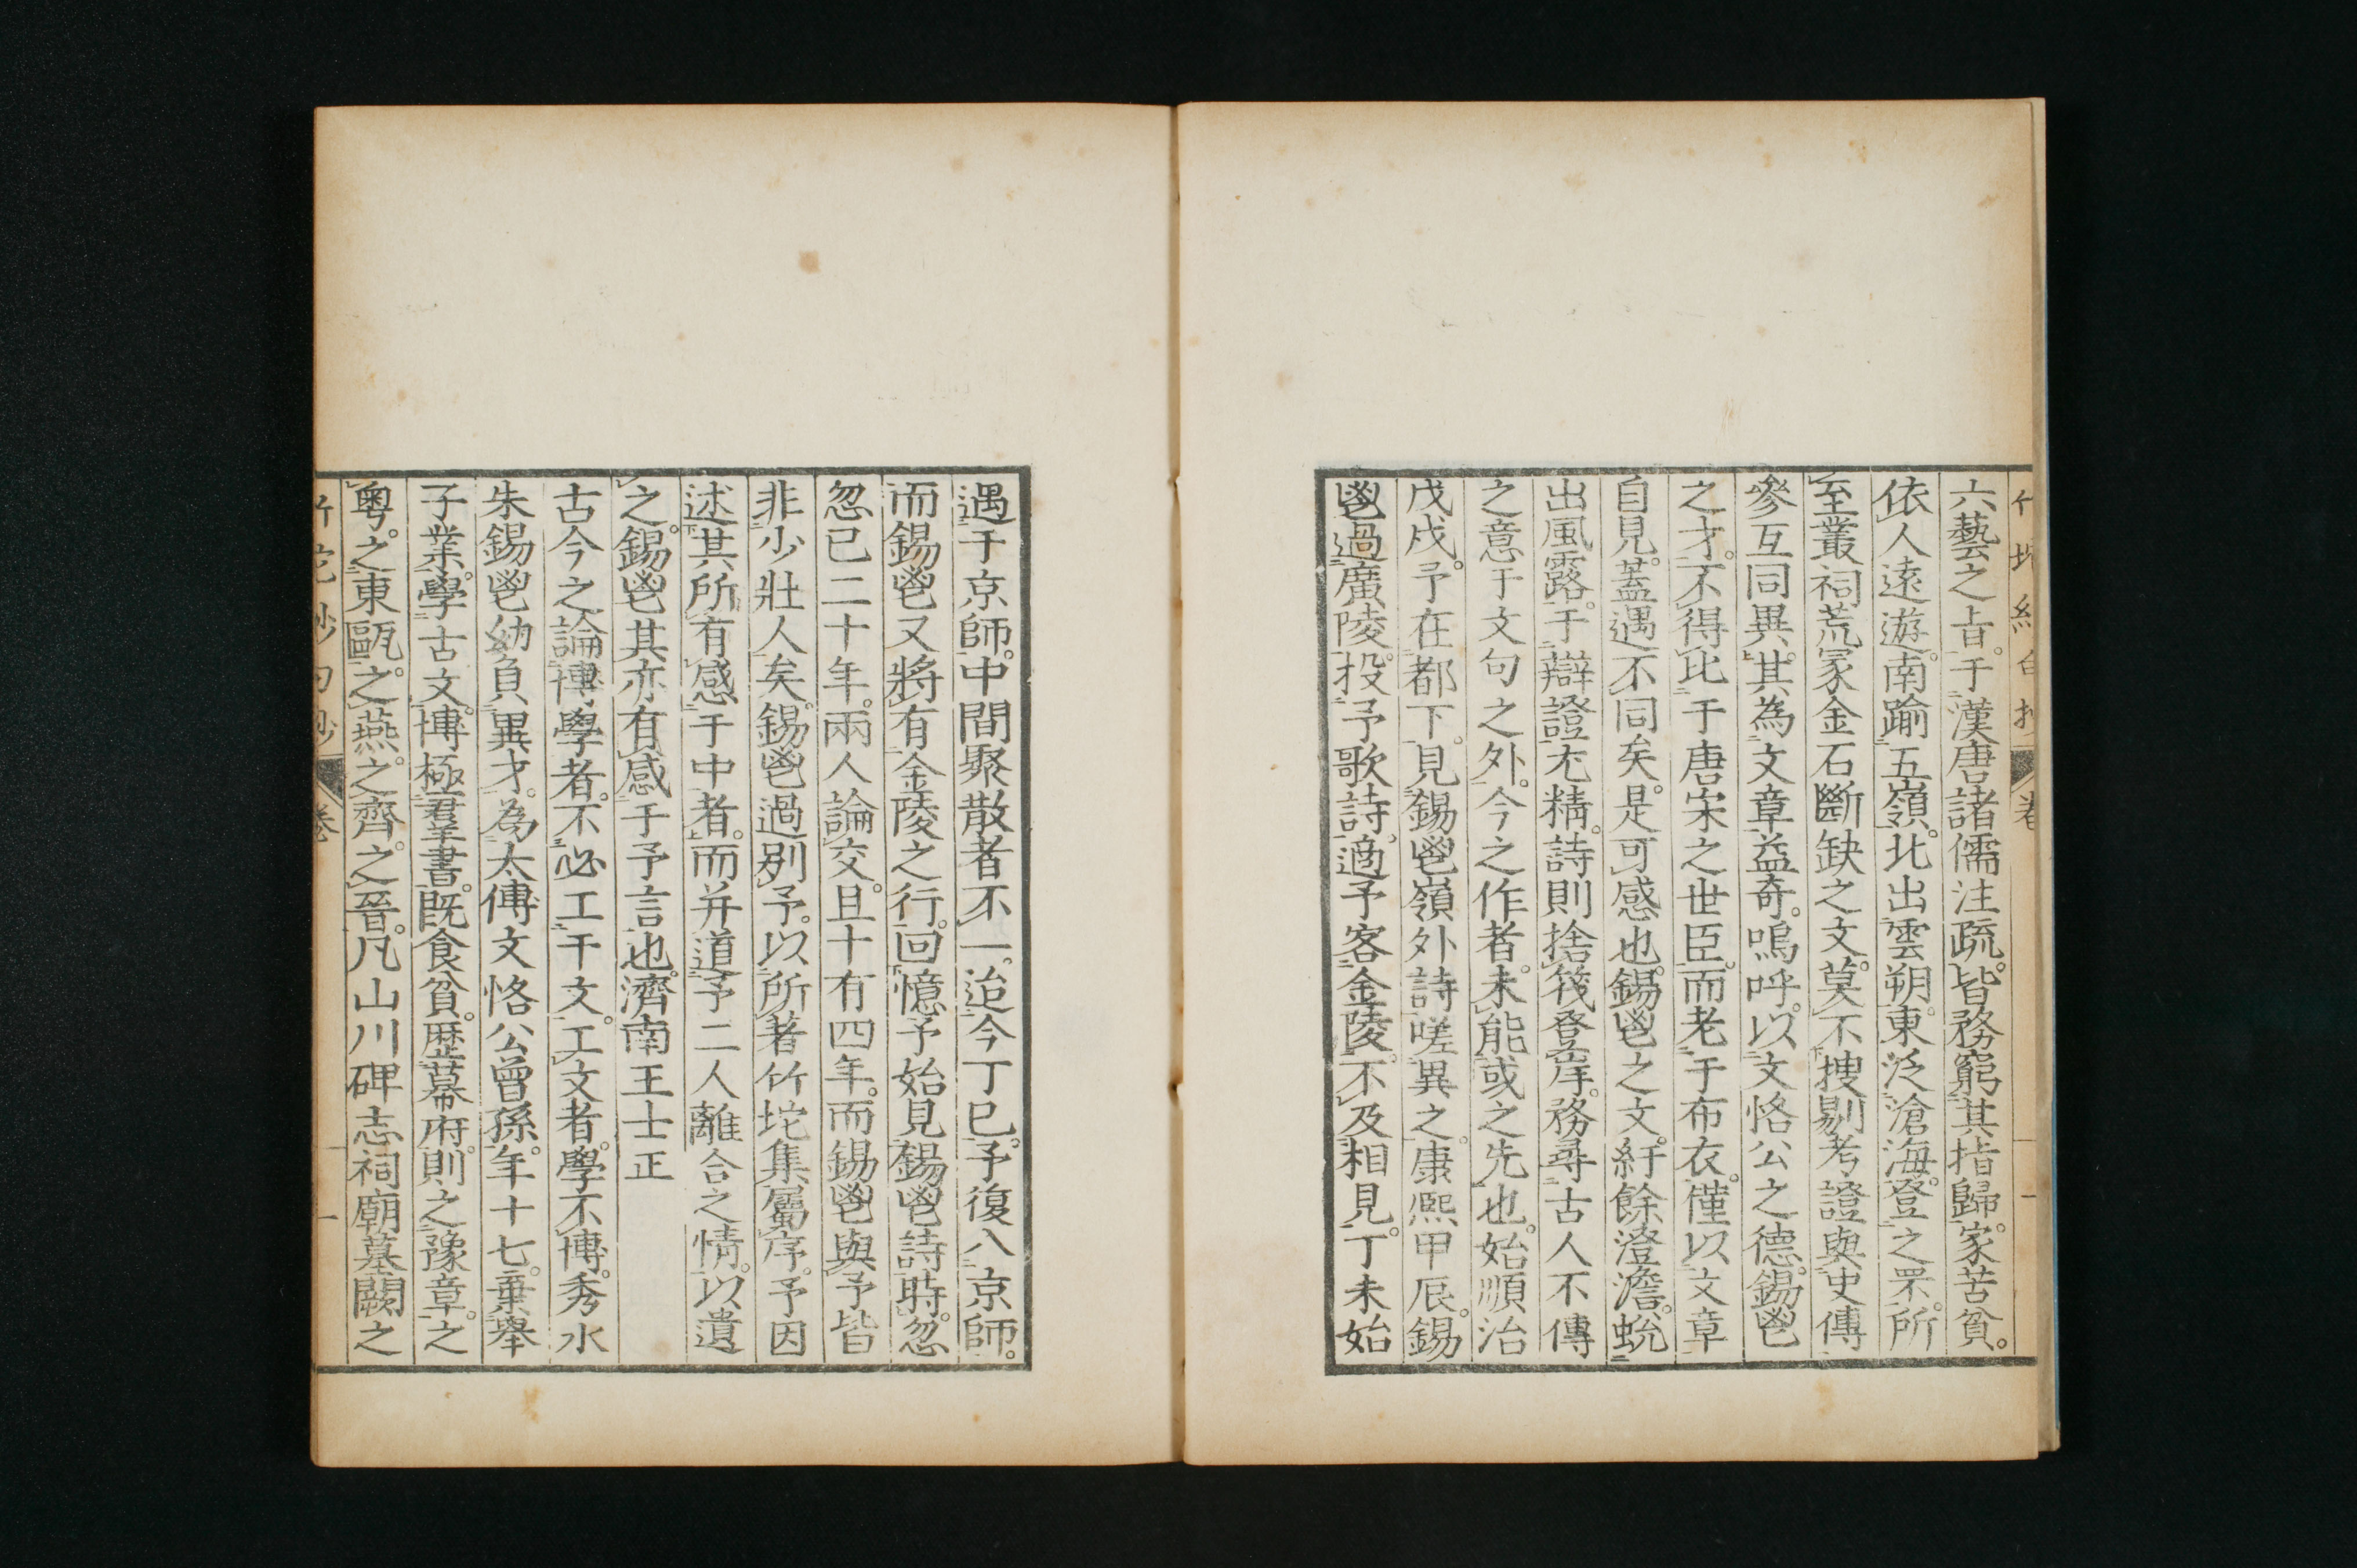 六藝之旨。于漢唐諸儒注疏。皆務窮其指歸。家苦貧。
依人遠遊。南踰五嶺。北出雲朔。東泛滄海。登之罘。所
至叢祠荒冢金石斷缺之文。莫不搜剔考證與史傳
參互同異。其為文章益奇。嗚呼。以文恪公之德。錫鬯
之才。不得比于唐宋之世臣。而老于布衣。僅以文章
自見。蓋遇不同矣。是可感也。錫鬯之文。紆餘澄澹。蛻
出風露。于辯證尤精。詩則捨筏登岸。務尋古人不傳
之意于文句之外。今之作者。未能或之先也。始順治
戊戌。予在都下。見錫鬯嶺外詩嗟異之。康熙甲辰。錫
鬯過廣陵。投予歌詩。適予客金陵。不及相見。丁未始
遇于京師。中間聚散者不一。迨今丁巳。予復八京師。
而錫鬯又將有金陵之行。回憶予始見錫鬯詩時。忽
忽已二十年。兩人論交。且十有四年。而錫鬯與予皆
非少壯人矣。錫鬯過別予。以所著竹垞集屬序。予因
述其所有感于中者。而并道予二人離合之情。以遺
之。錫鬯其亦有感于予言也。濟南王士正
古今之論博學者。不必工于文。工文者。學不博。秀水
朱錫鬯幼負異才。為太傅文恪公曾孫。年十七。棄舉
子業。學古文。博極羣書。既食貧。歷幕府。則之豫章。之
粵。之東甌。之燕。之齊。之晉。凡山川碑志祠廟墓闕之
卷
一